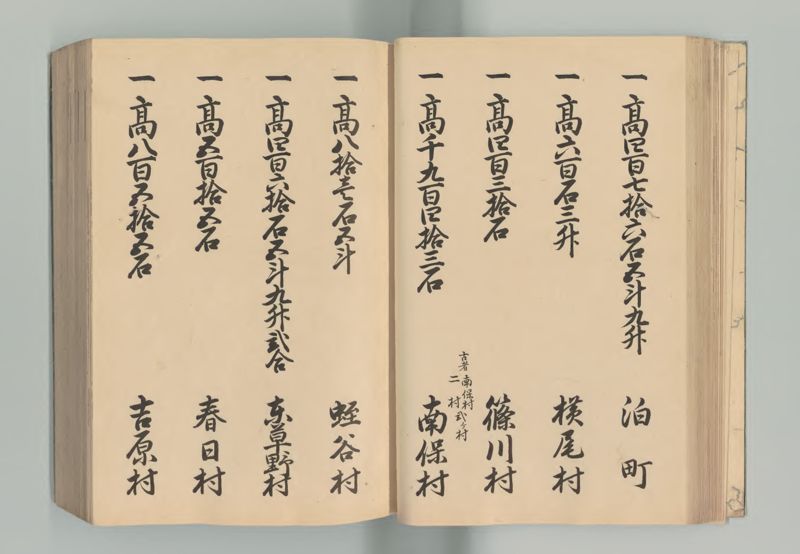 一 高四百七拾六石五斗九升 泊町
一 高六百石三升 横尾村
一 高四百三拾石 篠川村
古者南保村弐ヶ村
二村
一 高千九百四拾三石 南保村
一 高八拾壱石五斗 蛭谷村
一 高四百六拾石五斗九升弐合 東草野村
一 高五百拾五石 春日村
一 高八百五拾五石 吉原村